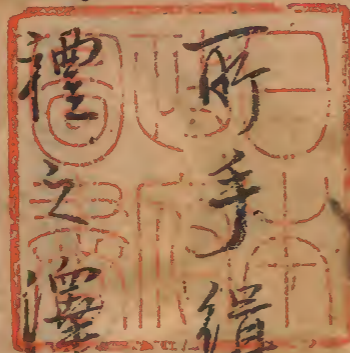 所手緝
禮之澤